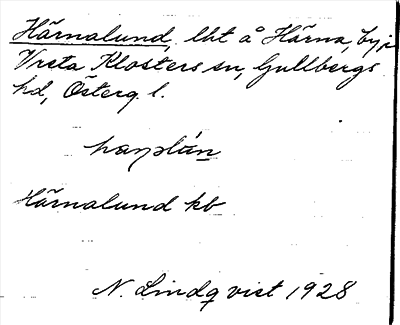 Härnalund, lht å Härna, by i
Vreta Klosters sn, Gullbergs
hd, Österg. l.
Härnalund kb
N. Lindqvist 1928